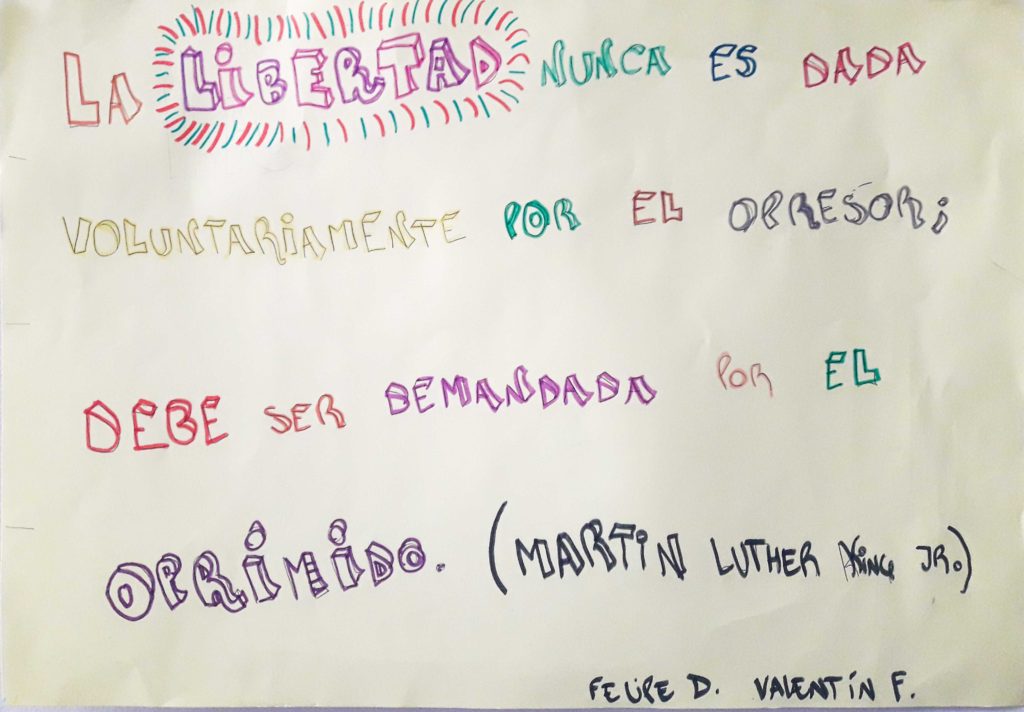 LA LIBERTAD NUNCA ES DADA
VOLUNTARIAMENTE POR EL OPRESOR;
DEBE SER DEMANDADA POR EL
OPRIMIDO. (MARTIN LUTHER KING JR.)
FELIPE D. VALENTÍN F.